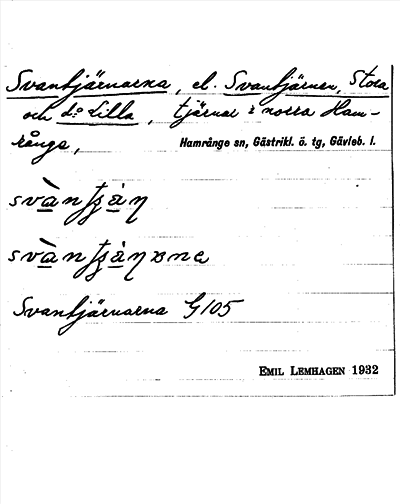 Svantjärnarna, el. Svantjärnen, Stora
och d:o Lilla, tjärnar i norra Ham-
rånge,
Hamrånge sn, Gästrikl. ö. tg, Gävleb. l.
Svantjärnarna G105
EMIL LEMHAGEN 1932